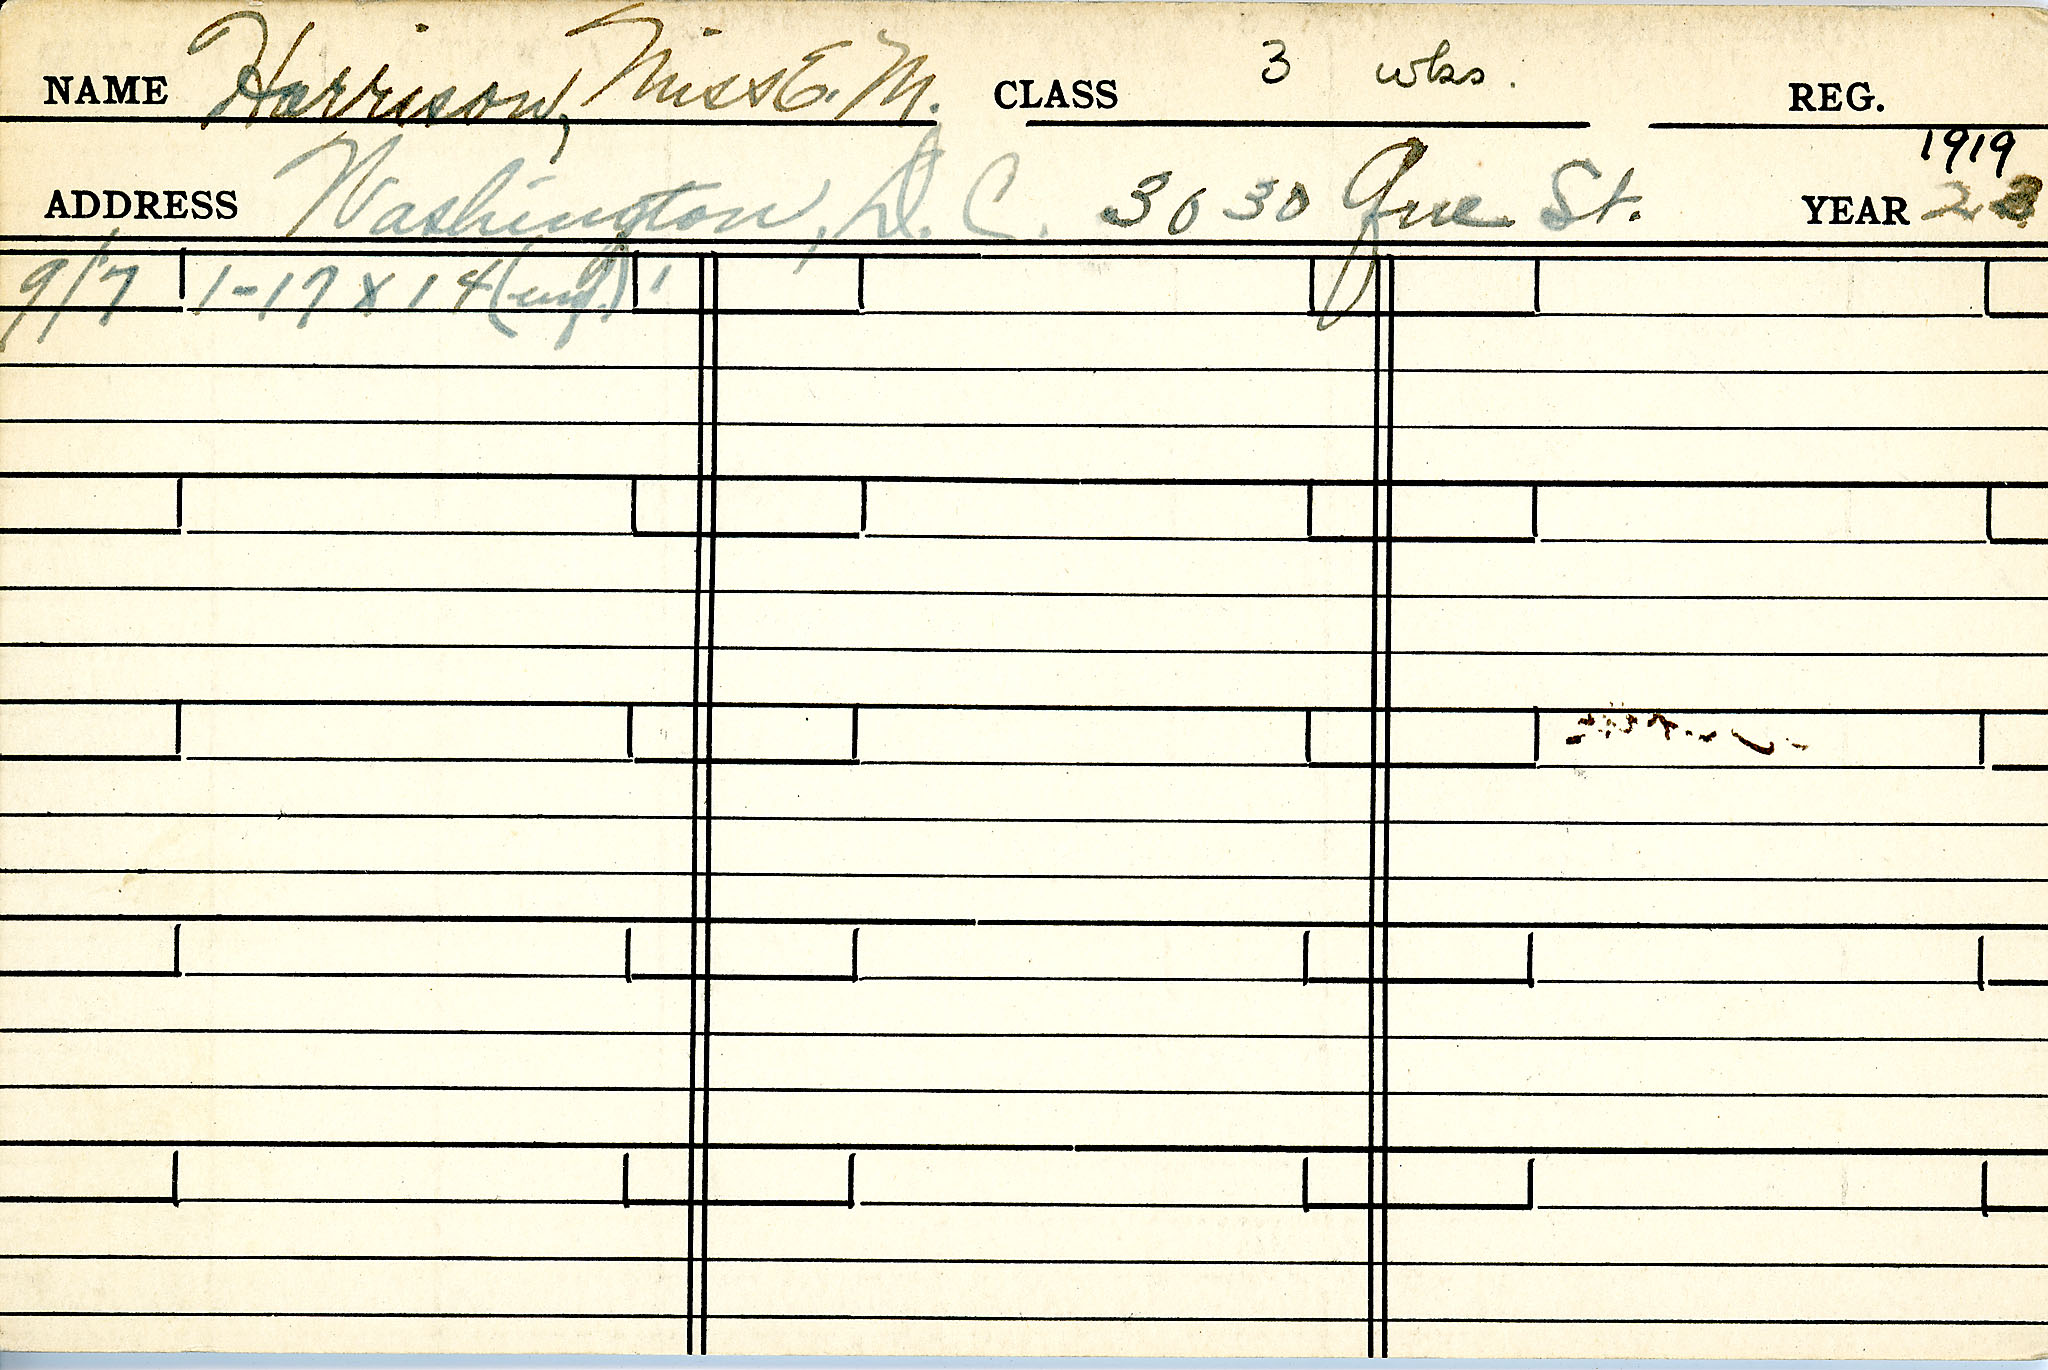 NAME Harrison, Miss E. M. CLASS 3 wks. REG.
1919
ADDRESS Washington, D. C. 3030 Que St. YEAR 23
9/7 1-17x14 (ung.)